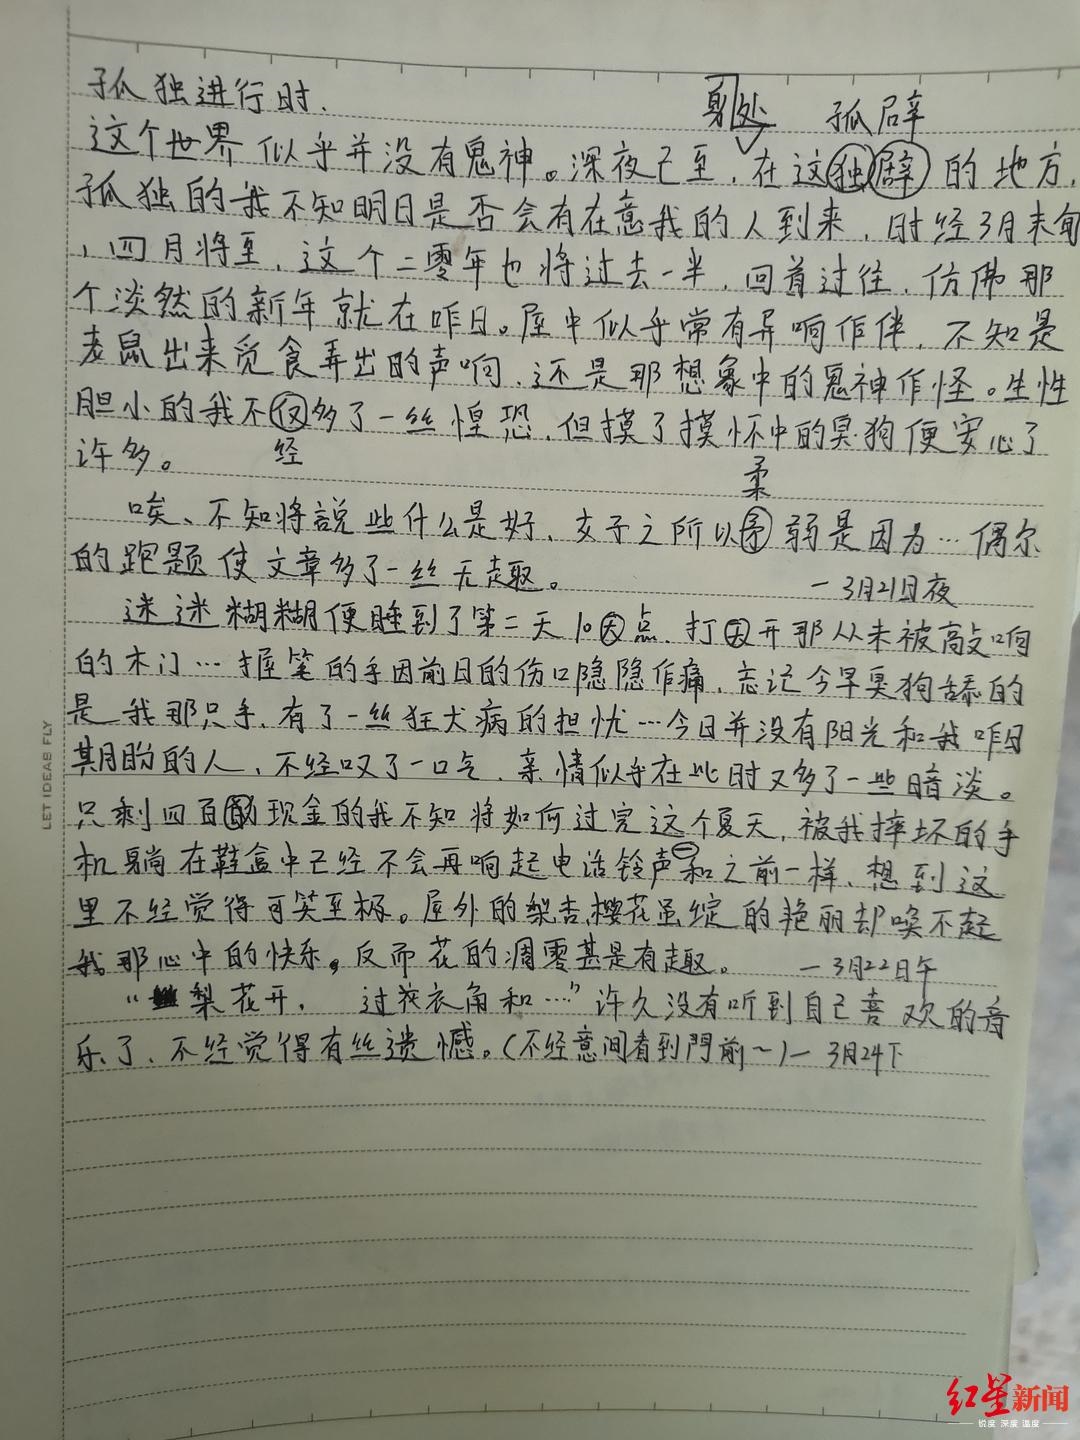 孤独进行时.
身处 孤辟
这个世界似乎并没有鬼神。深夜已至,在这独辟的地方,
孤独的我不知明日是否会有在意我的人到来,时经3月末旬
,四月将至,这个二零年也将过去一半,回首过往,仿佛那
个淡然的新年就在昨日。屋中似乎常有异响作伴,不知是
老鼠出来觅食弄出的声响,还是那想象中的鬼神作怪。生性
胆小的我不仅多了一丝惶恐,但摸了摸怀中的臭狗便安心了
许多。 经
柔
唉、不知将説些什么是好、女子之所以矛弱是因为…偶尔
的跑题使文章多了一丝无趣。 一3月21日夜
迷迷糊糊便睡到了第二天10点,打开那从未被敲响
的木门…握笔的手因前日的伤口隐隐作痛,忘记今早臭狗舔的
是我那只手,有了一丝狂犬病的担忧…今日并没有阳光和我昨日
期盼的人、不经叹了一口气,亲情似乎在此时又多了一些暗淡。
只剩四百现金的我不知将如何过完这个夏天,被我摔坏的手
机躺在鞋盒中已经不会再响起电话铃声和之前一样、想到这
里不经觉得可笑至极。屋外的梨杏,樱花虽绽的艳丽却唤不起
我那心中的快乐。反而花的凋零甚是有趣。 一3月22日午
“梨花开, 过莰衣角和…”许久没有听到自己喜欢的音
乐了、不经觉得有丝遗憾。(不经意间看到門前~)一 3月24下
LET IDEAS FLY
红星新闻
锐度 深度 温度